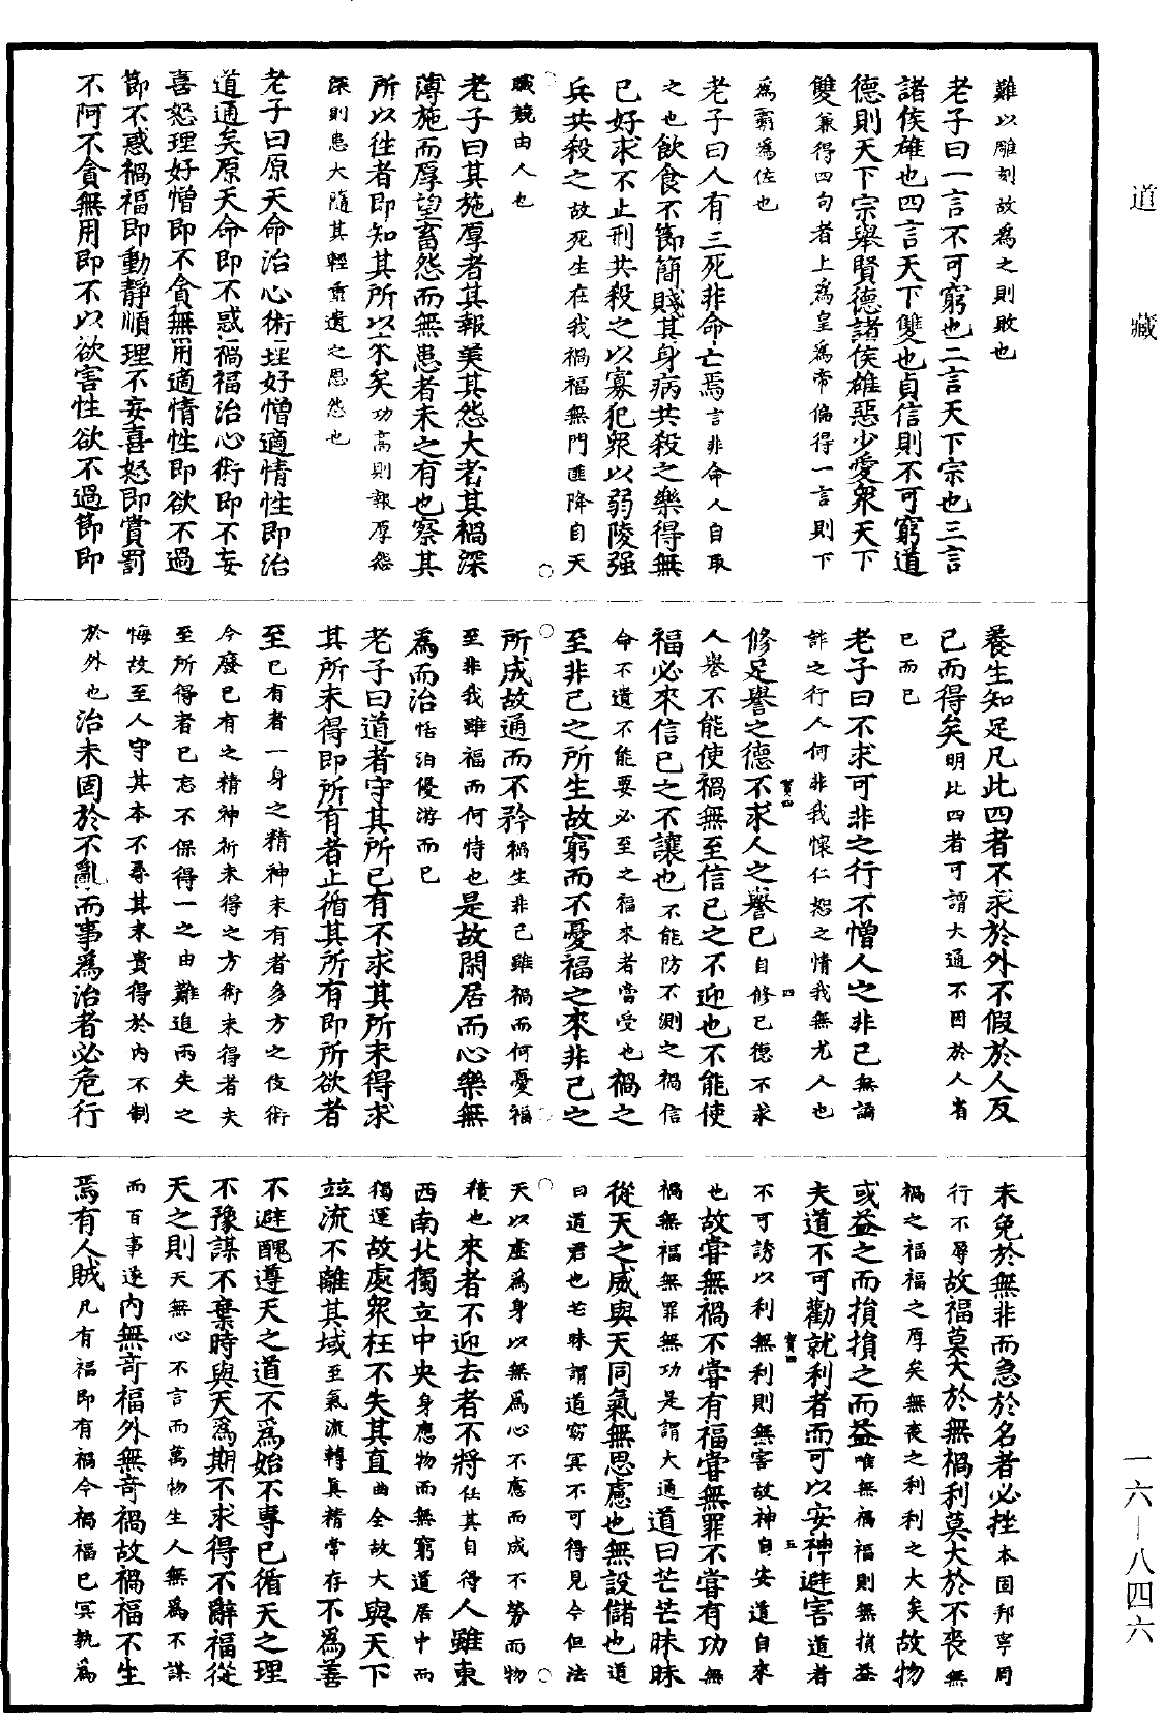 難以雕刻故為之則敗也
老子曰一言不可窮也二言天下宗也三言
諸侯雄也四言天下雙也貞信則不可窮道
德則天下宗舉賢德諸侯雄惡少愛衆天下
雙兼得四句者上為皇為帝偏得一言則下
為霸為佐也
老子曰人有三死非命亡焉言非命人自取
之也飲食不節簡賤其身病共殺之樂得無
已好求不止刑共殺之以寡犯衆以弱陵强
兵共殺之故死生在我禍福無門匪降自天
職競由人也
老子曰其施厚者其報美其怨大者其禍深
薄施而厚望畜怨而無患者未之有也察其
所以往者即知其所以来矣功高則報厚怨
深則患大隨其輕重遺之恩怨也
老子曰原天命治心術理好憎適情性即治
道通矣原天命即不惑禍福治心術即不妄
喜怒理好憎即不貪無用適情性即欲不過
節不惑禍福即動靜順理不妄喜怒即賞罰
不阿不貪無用即不以欲害性欲不過節即
養生知足凡此四者不求於外不假於人反
己而得矣明此四者可謂大通不因於人省
已而已
老子曰不求可非之行不憎人之非己無謟
詐之行人何非我懷仁恕之情我無尤人也
修足譽之德不求人之譽已自修已德不求
人譽不能使禍無至信已之不迎也不能使
福必來信已之不讓也不能防不測之禍信
命不遺不能要必至之福來者當受也禍之
至非己之所生故窮而不憂福之來非己之
所成故通而不矜禍生非己雖禍而何憂福
至非我雖福而何恃也是故閑居而心樂無
為而治恬泊優游而已
老子曰道者守其所已有不求其所未得求
其所未得即所有者止循其所有即所欲者
至已有者一身之精神未有者多方之伎術
今廢已有之精神祈未得之方術未得者夫
至所得者已忘不保得一之由難追兩失之
悔故至人守其本不尋其末貴得於內不制
於外也治未固於不亂而事為治者必危行
未免於無非而急於名者必挫本固邦寧周
行不辱故福莫大於無禍利莫大於不喪無
禍之福福之厚矣無喪之利利之大矣故物
或益之而損損之而益唯無禍福則無損益
夫道不可勸就利者而可以安神避害道者
不可謗以利無利則無害故神自安道自來
也故嘗無禍不嘗有福嘗無罪不嘗有功無
禍無福無罪無功是謂大通道曰芒芒昧昧
從天之威與天同氣無思慮也無設儲也道
曰道君也芒昧謂道窈冥不可得見今但法
天以虛為身以無為心不應而成不勞而物
積也來者不迎去者不將任其自得人雖東
西南北獨立中央身應物而無窮道居中而
獨運故處衆枉不失其直曲全故大與天下
竝流不離其域至氣流轉真精常存不為善
不避醜遵天之道不為始不專己循天之理
不豫謀不棄時與天為期不求得不辭福從
天之則天無心不言而萬物生人無為不謀
而百事遂內無奇福外無奇禍故禍福不生
焉有人賊凡有福即有禍今禍福已冥孰為
寶四
四
寶四
五
道藏
一六—八四六